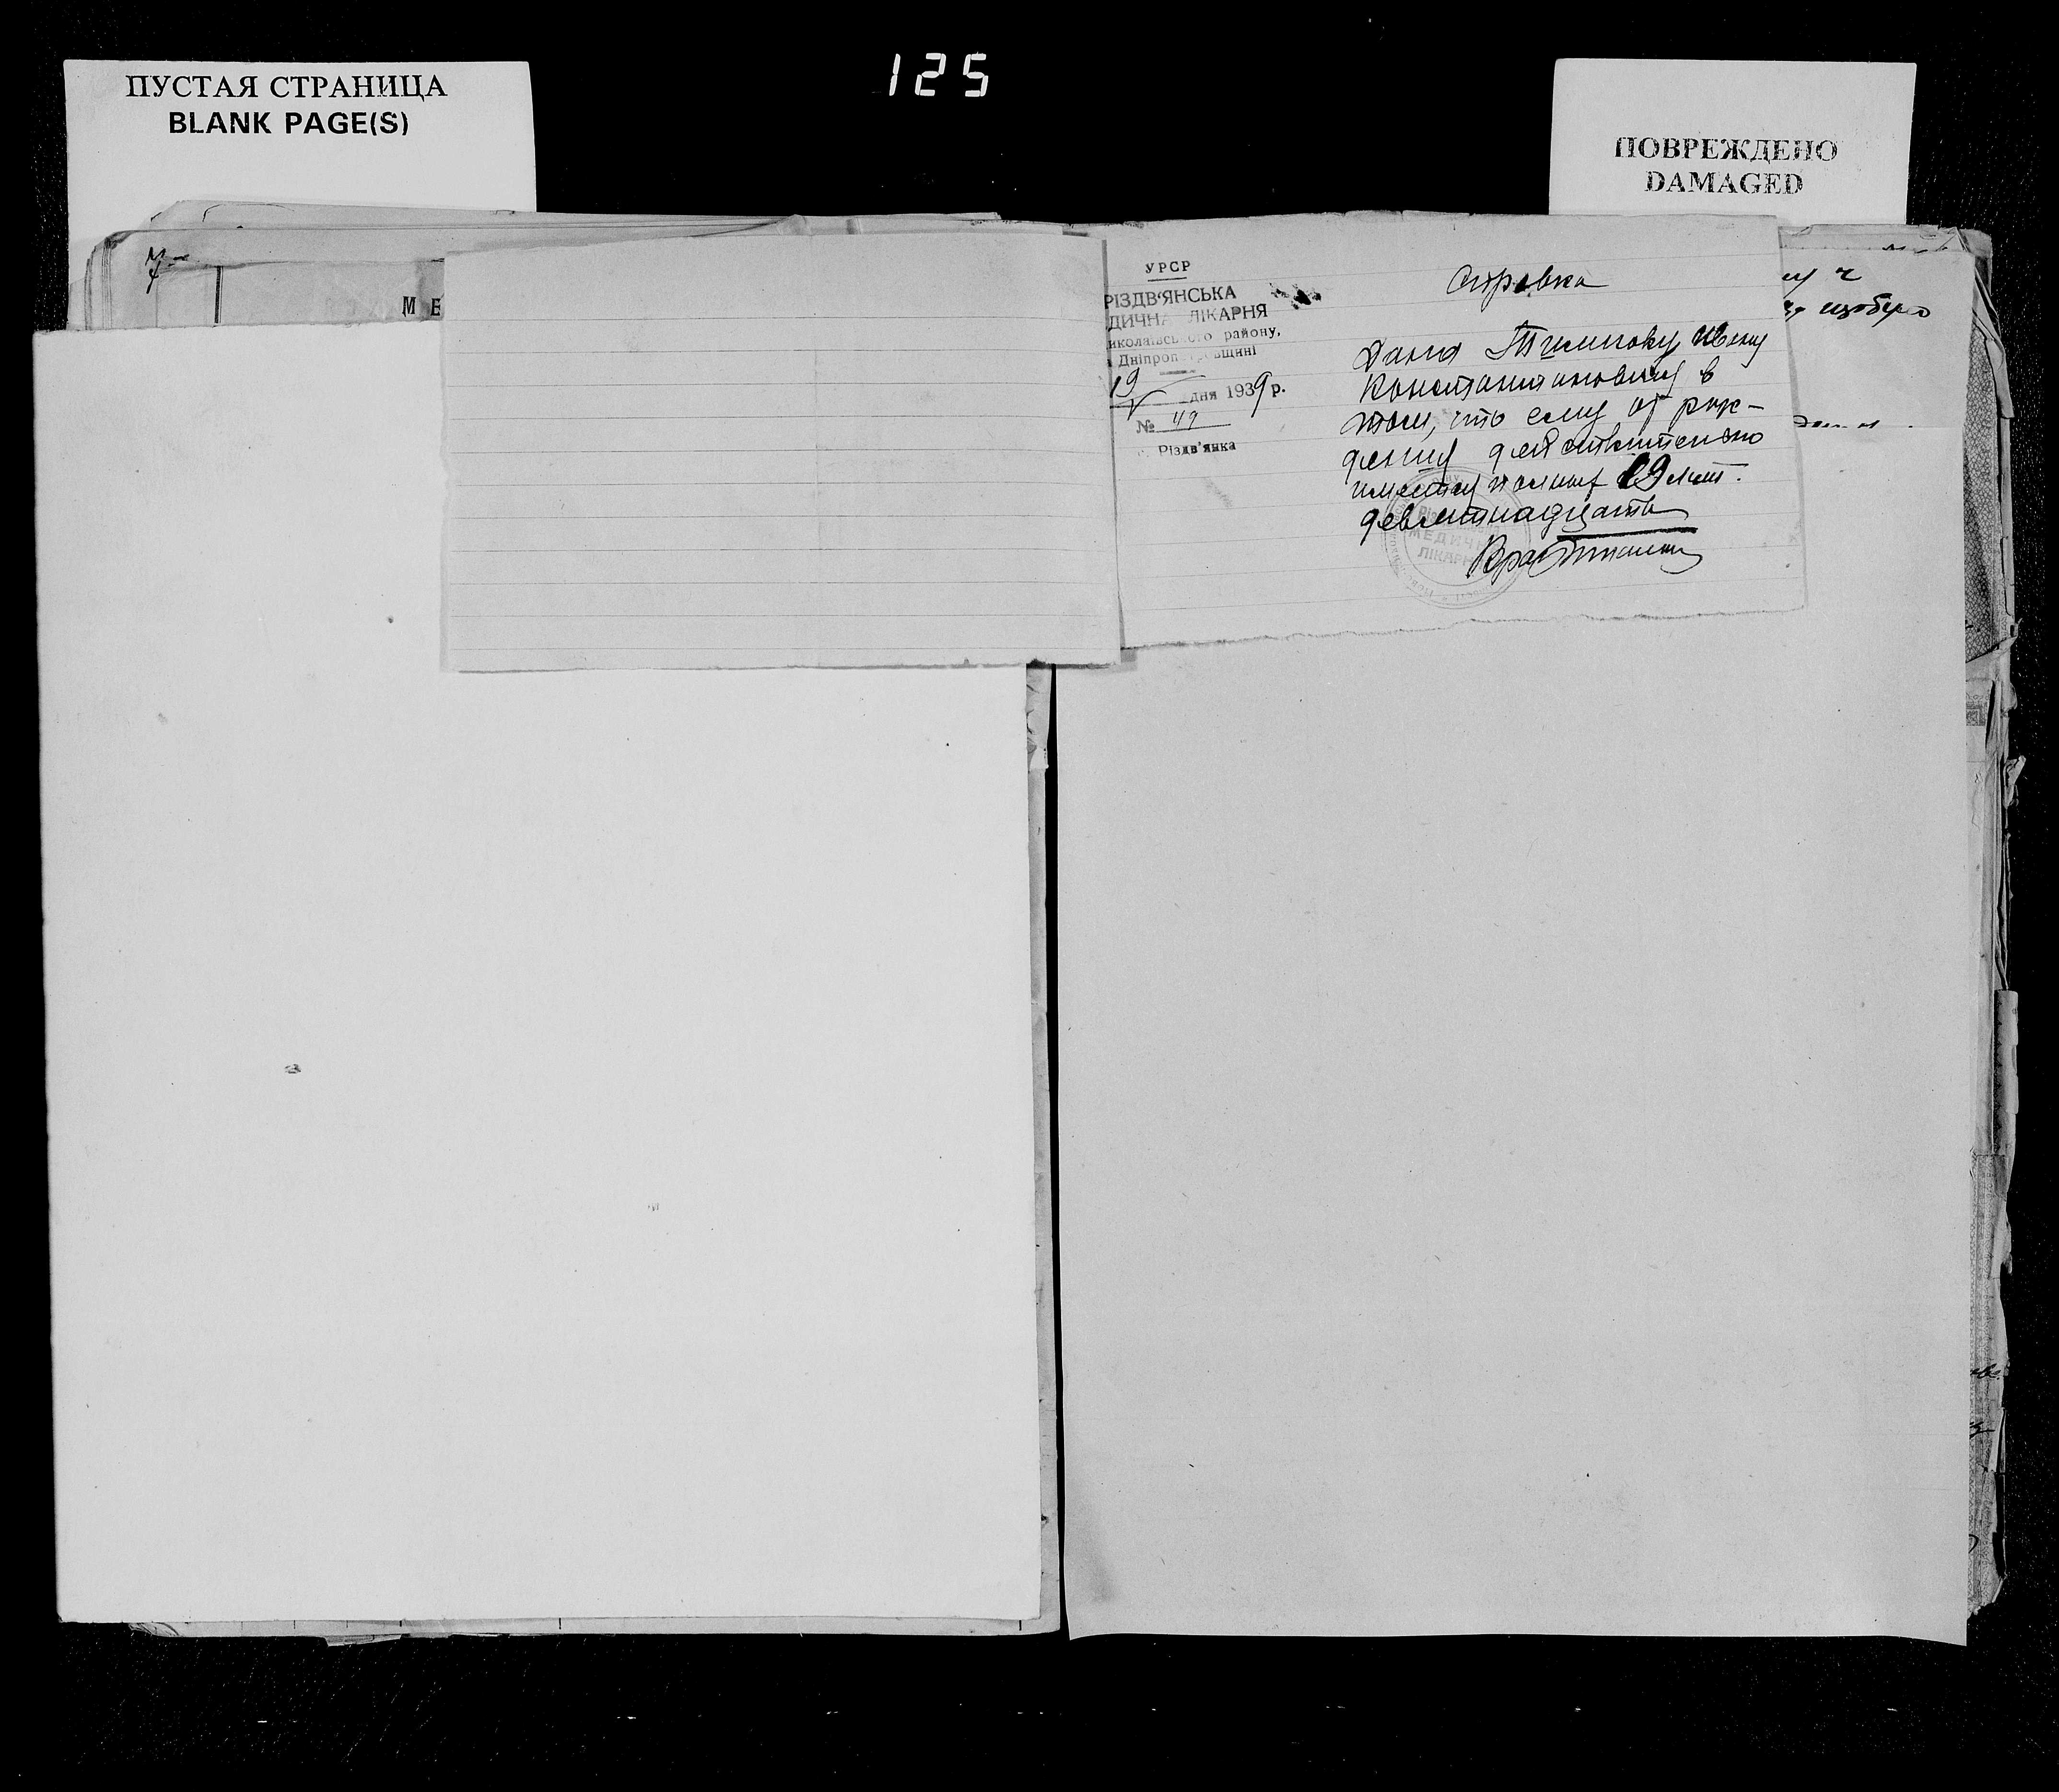 ПУСТАЯ СТРАНИЦА
BLANK PAGE(S)
125
ПОВРЕЖДЕНО
DAMAGED
М Е
УРСР
РІЗДВ'ЯНСЬКА
ДИЧНА ЛІКАРНЯ
иколаївського району,
Дніпроп
19
V
дня 1939 р.
№ 49
Різдв'янка
Справка
Дана Ивану
Константиновичу в
том, что ему от рож-
дения действительно
19 лет.
девятнадцать
Врач
МЕДИЧ
ЛІКАРН